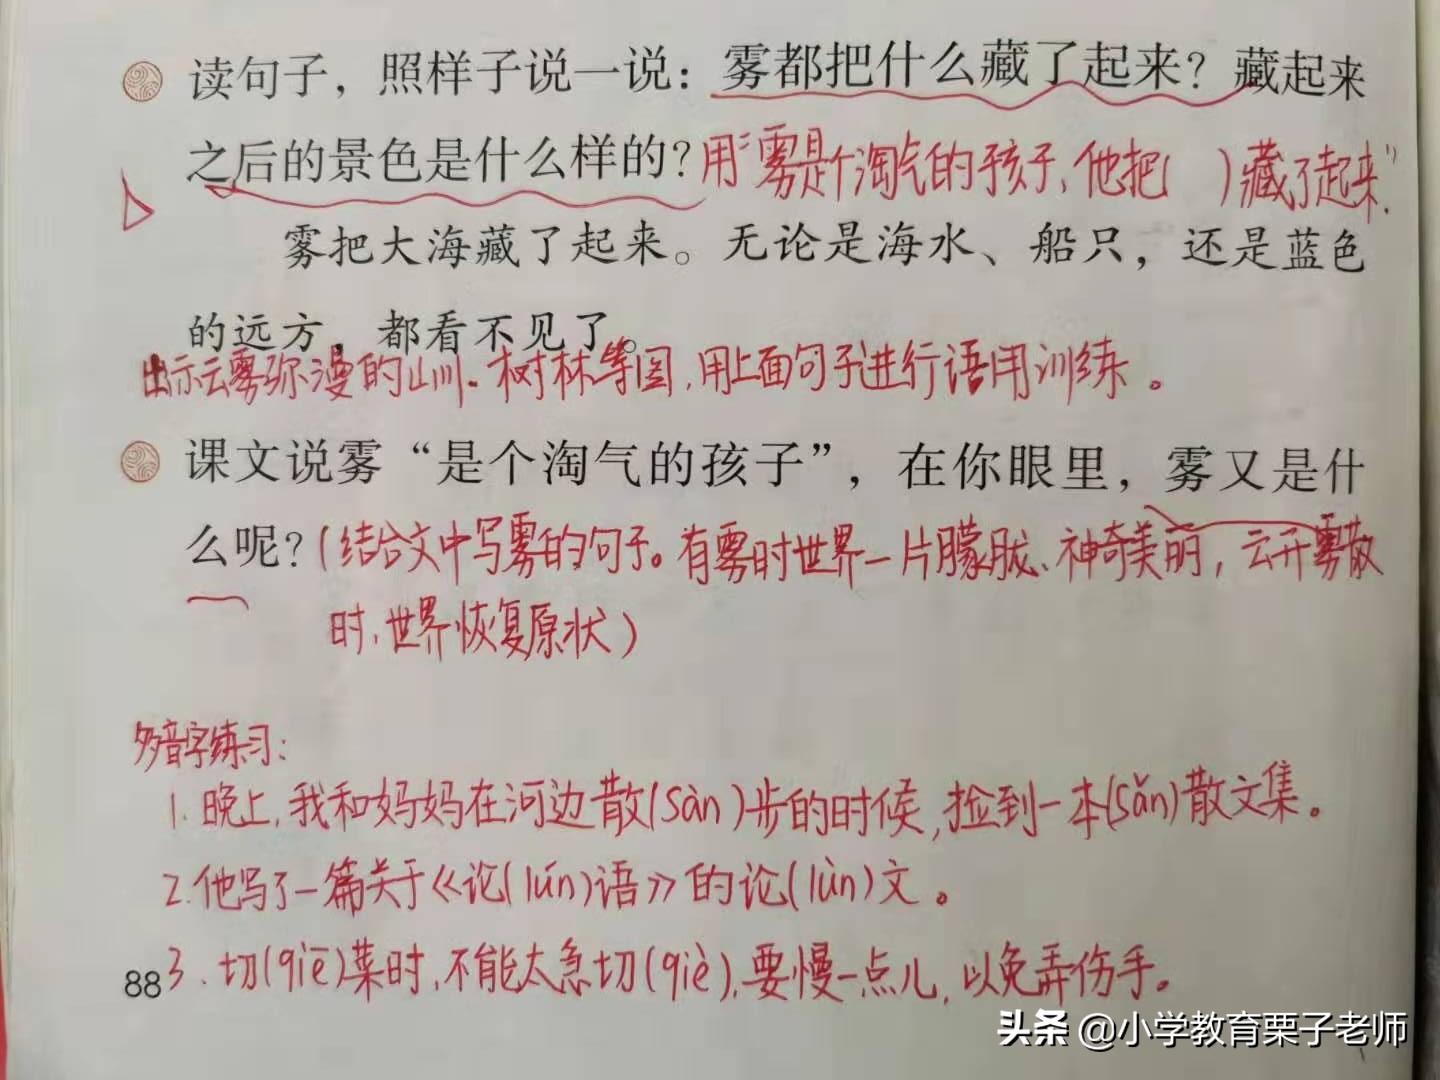 读句子，照样子说一说：雾都把什么藏了起来？藏起来
之后的景色是什么样的？用“雾是个淘气的孩子，他把（　）藏了起来”
雾把大海藏了起来。无论是海水、船只，还是蓝色
的远方，都看不见了。
出示云雾弥漫的山川、树林等图，用上面句子进行语用训练。
课文说雾“是个淘气的孩子”，在你眼里，雾又是什
么呢？（结合文中写雾的句子。有雾时世界一片朦胧、神奇美丽，云开雾散
时，世界恢复原状）
多音字练习：
1. 晚上，我和妈妈在河边散(sàn)步的时候，捡到一本(sǎn)散文集。
2. 他写了一篇关于《论(lún)语》的论(lùn)文。
3. 切(qiē)菜时，不能太急切(qiè)，要慢一点儿，以免弄伤手。
88
头条 @小学教育栗子老师